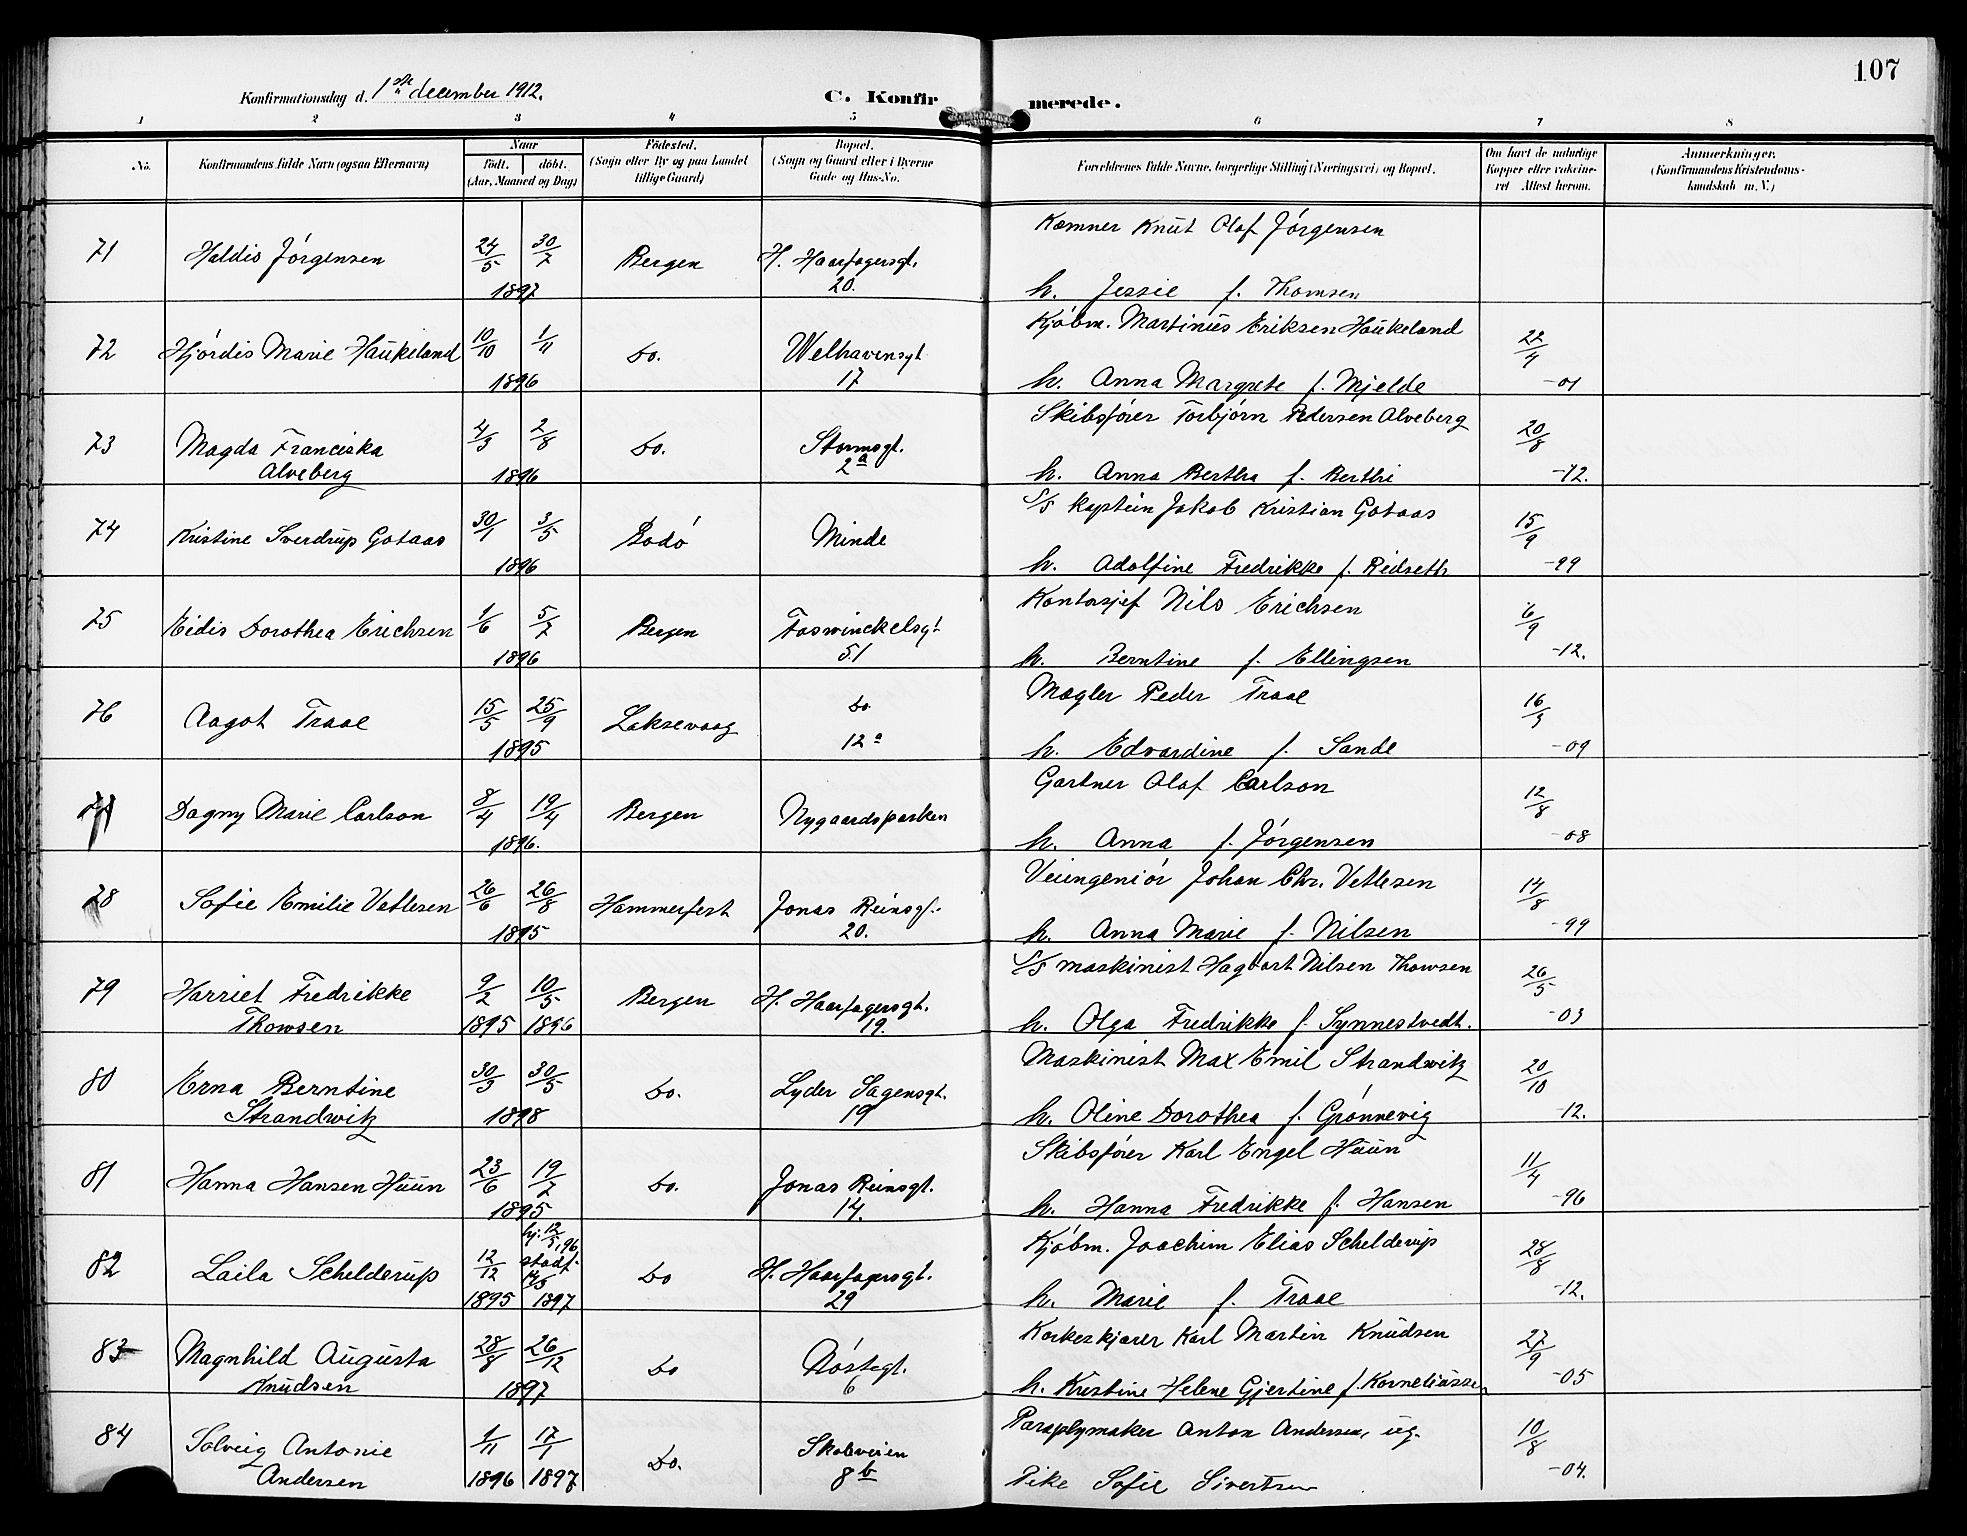 107
Konfirmationsdag d. 1ste december 1912.
C. Konfirmerede.
1 2 3 4 5 6 7 8
No. Konfirmandens fulde Navn (ogsaa Efternavn) Naar födt. döbt. (Aar, Maaned og Dag) Födested. (Sogn eller By og paa Landet tillige Gaard) Bopæl. (Sogn og Gaard eller i Byerne Gade og Hus-No. Forældrenes fulde Navne, borgerlige Stilling (Næringsvei) og Bopæl. Om havt de naturlige Kopper eller vaccineret. Attest herom. Anmærkninger. (Konfirmandens Kristendomskundskab m. V.)
71 Haldis Jörgensen 24/5 30/7 1897 Bergen H. Haarfagersgt. 20. Kæmner Knut Olaf Jörgensen
h. Jessie f. Thomsen
72 Hjördis Marie Haukeland 10/10 1/11 1896 do. Welhavensgt 17 Kjöbm. Martinus Eriksen Haukeland 22/4 -01
h. Anna Margrete f. Mjelde
73 Magda Franciska Alveberg 4/3 2/8 1896 do. Stormsgt. 2a Skibsförer Torbjörn Pedersen Alveberg 20/8 -12.
h. Anna Bertha f. Berthi
74 Kristine Sverdrup Gotaas 30/1 3/5 1896 Bodö Minde S/S kaptein Jakob Kristian Gotaas 15/9 -99
h. Adolfine Fredrikke f. Redseth
75 Eidis Dorothea Erichsen 1/6 5/7 1896 Bergen Foswinckelsgt 51 Kontorsjef Nils Erichsen 6/9 -12.
h. Berntine f. Ellingsen
76 Aagot Traae 15/5 25/9 1895 Laksevaag do 12a Mægler Peder Traae 16/3 -09
h. Edvardine f. Sande
77 Dagny Marie Carlson 8/4 19/4 1896. Bergen Nygaardsparken Gartner Olaf Carlson 12/8 -08
h. Anna f. Jörgensen
78 Sofie Emilie Vetlesen 26/6 26/8 1895 Hammerfest Jonas Reinsgt. 20. Veiingeniör Johan Chr. Vetlesen 14/8 -99
h. Anna Marie f. Nilsen
79 Harriet Fredrikke Thowsen 9/2 1895 10/5 1896 Bergen H. Haarfagersgt. 19. S/S maskinist Hagbart Nilsen Thowsen 26/5 -03
h. Olga Fredrikke f. Synnestvedt.
80 Erna Berntine Strandwitz 30/3 30/5 1898 do. Lyder Sagensgt. 19 Maskinist Max Emil Strandwitz 20/10 -12.
h. Oline Dorothea f. Grönnevig
81 Hanna Hansen Huun 23/6 19/7 1895 do. Jonas Reinsgt. 14. Skibsförer Karl Engel Huun 11/4 -96
h. Hanna Fredrikke f. Hansen
82 Laila Schelderup 12/12 1895 hj. 12/5, 96 stadf. 14/5 1897 do H. Haarfagersgt. 29 Kjöbm. Joachim Elias Schelderup 28/8 -12.
h. Marie f. Traae
83 Magnhild Augusta Knudsen 28/8 26/12 1897 do Nöstegt. 6 Korkeskjærer Karl Martin Knudsen 27/9 -05
h. Kristine Helene Gjertine f. Korneliussen
84 Solveig Antonie Andersen 1/11 1896 17/1 1897 do. Skoleveien 8b Paraplymaker Anton Andersen, ug. 10/8 -04.
Pike Sofie Sivertsen